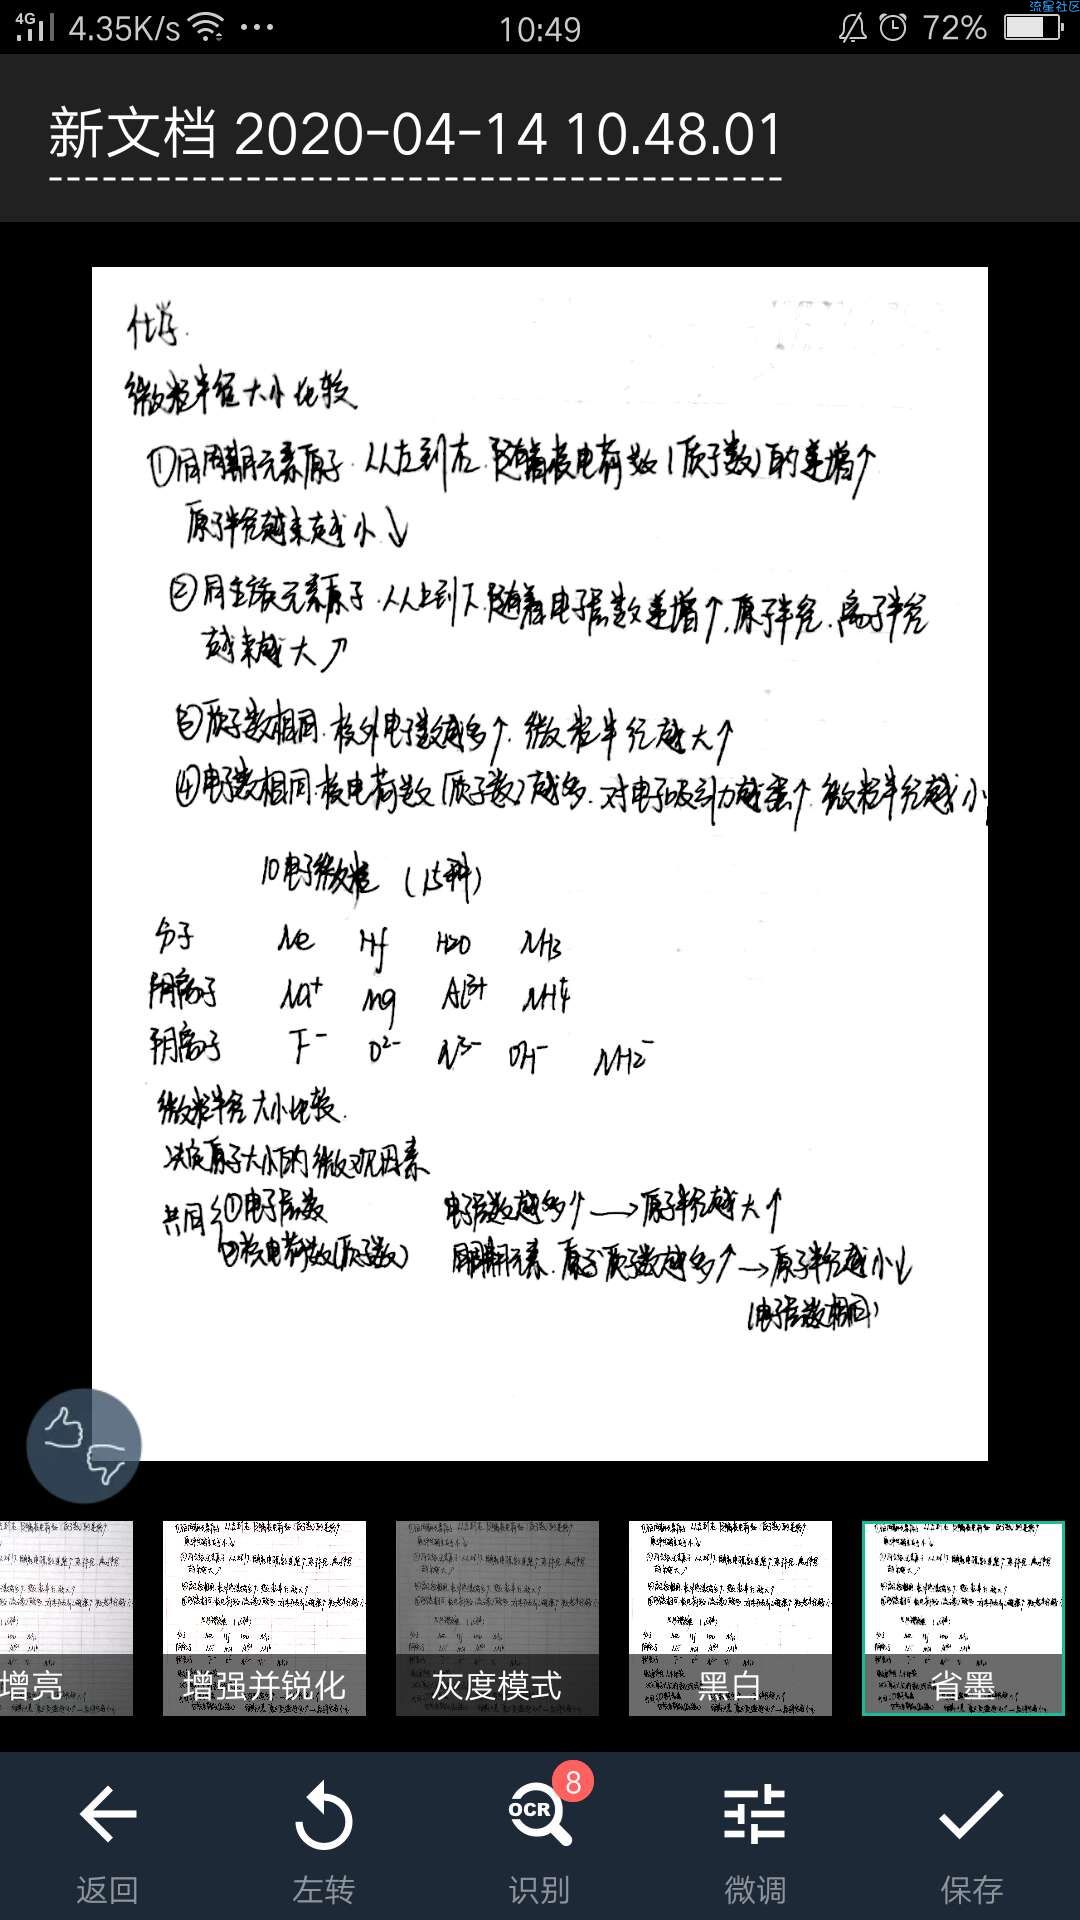 流星社区
4G 4.35K/s ... 10:49 72%
新文档 2020-04-14 10.48.01
化学.
微粒半径大小比较
①同周期元素原子.从左到右.随着核电荷数(质子数)的递增↑
原子半径越来越小↓
②同主族元素原子.从上到下.随着电子层数递增↑,原子半径.离子半径
越来越大↗
③质子数相同.核外电子数越多↑.微粒半径越大↑
④电子数相同.核电荷数(质子数)越多.对电子吸引力越强↑.微粒半径越小
10电子微粒 (15种)
分子 Ne Hf H2O NH3
阳离子 Na⁺ mg Al³⁺ NH4⁺
阴离子 F⁻ O²⁻ N³⁻ OH⁻ NH2⁻
微粒半径大小比较.
决定原子大小的微观因素
共同 ①电子层数 电子层数越多↑→原子半径越大↑
②核电荷数(质子数) 同周期元素.原子质子数越多↑→原子半径越小↓
(电子层数相同)
增亮 增强并锐化 灰度模式 黑白 省墨
OCR 8
返回 左转 识别 微调 保存